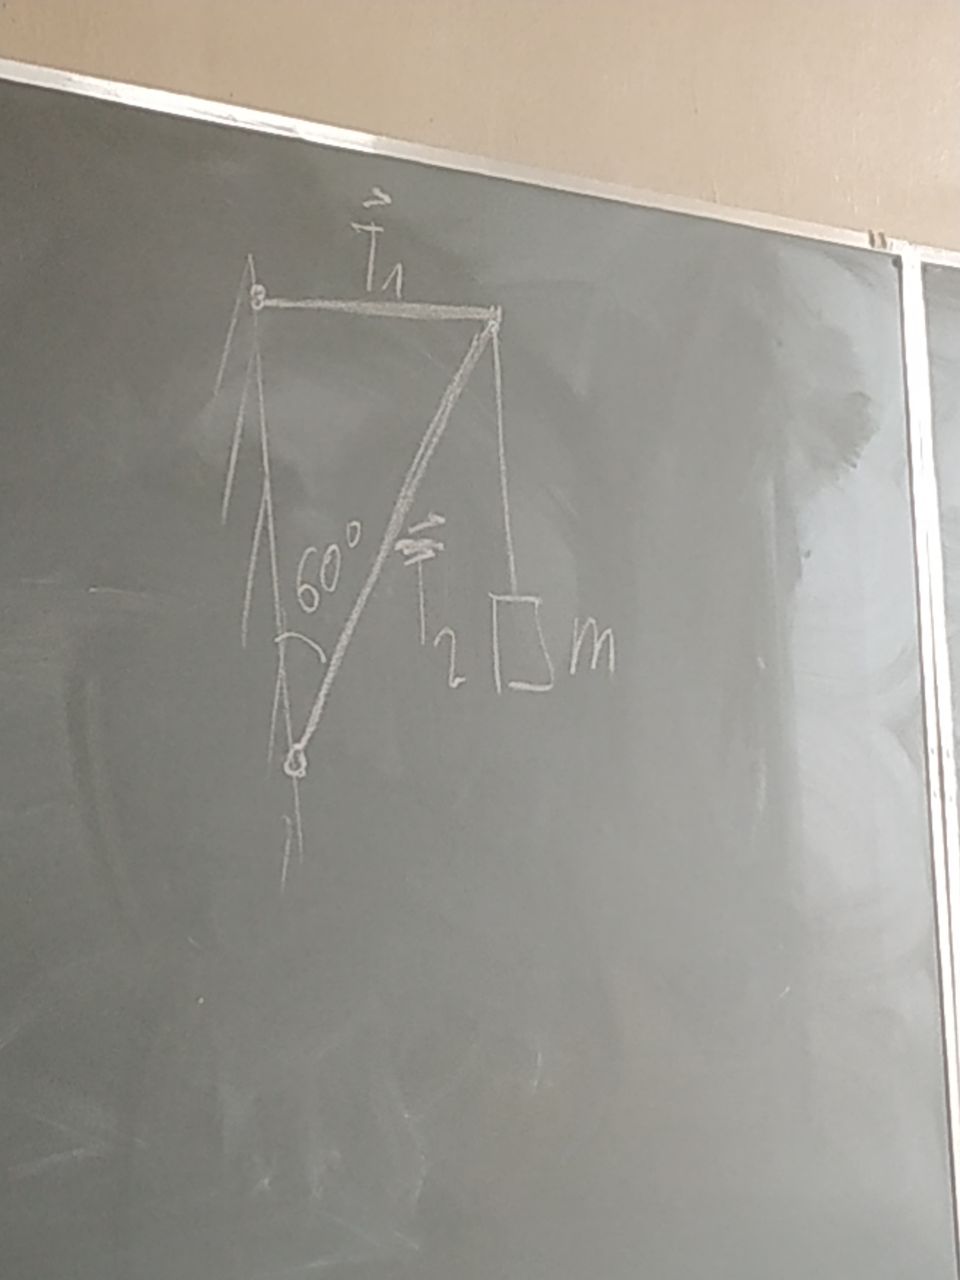 T⃗₁
60°
T⃗₂
m